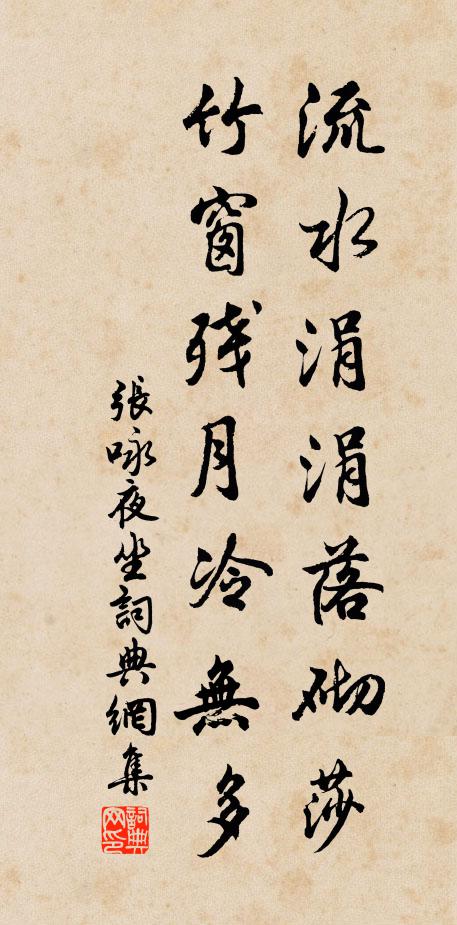 流水涓涓落砌莎
竹窗残月冷無多
張咏夜坐詞典網集
詞典网印